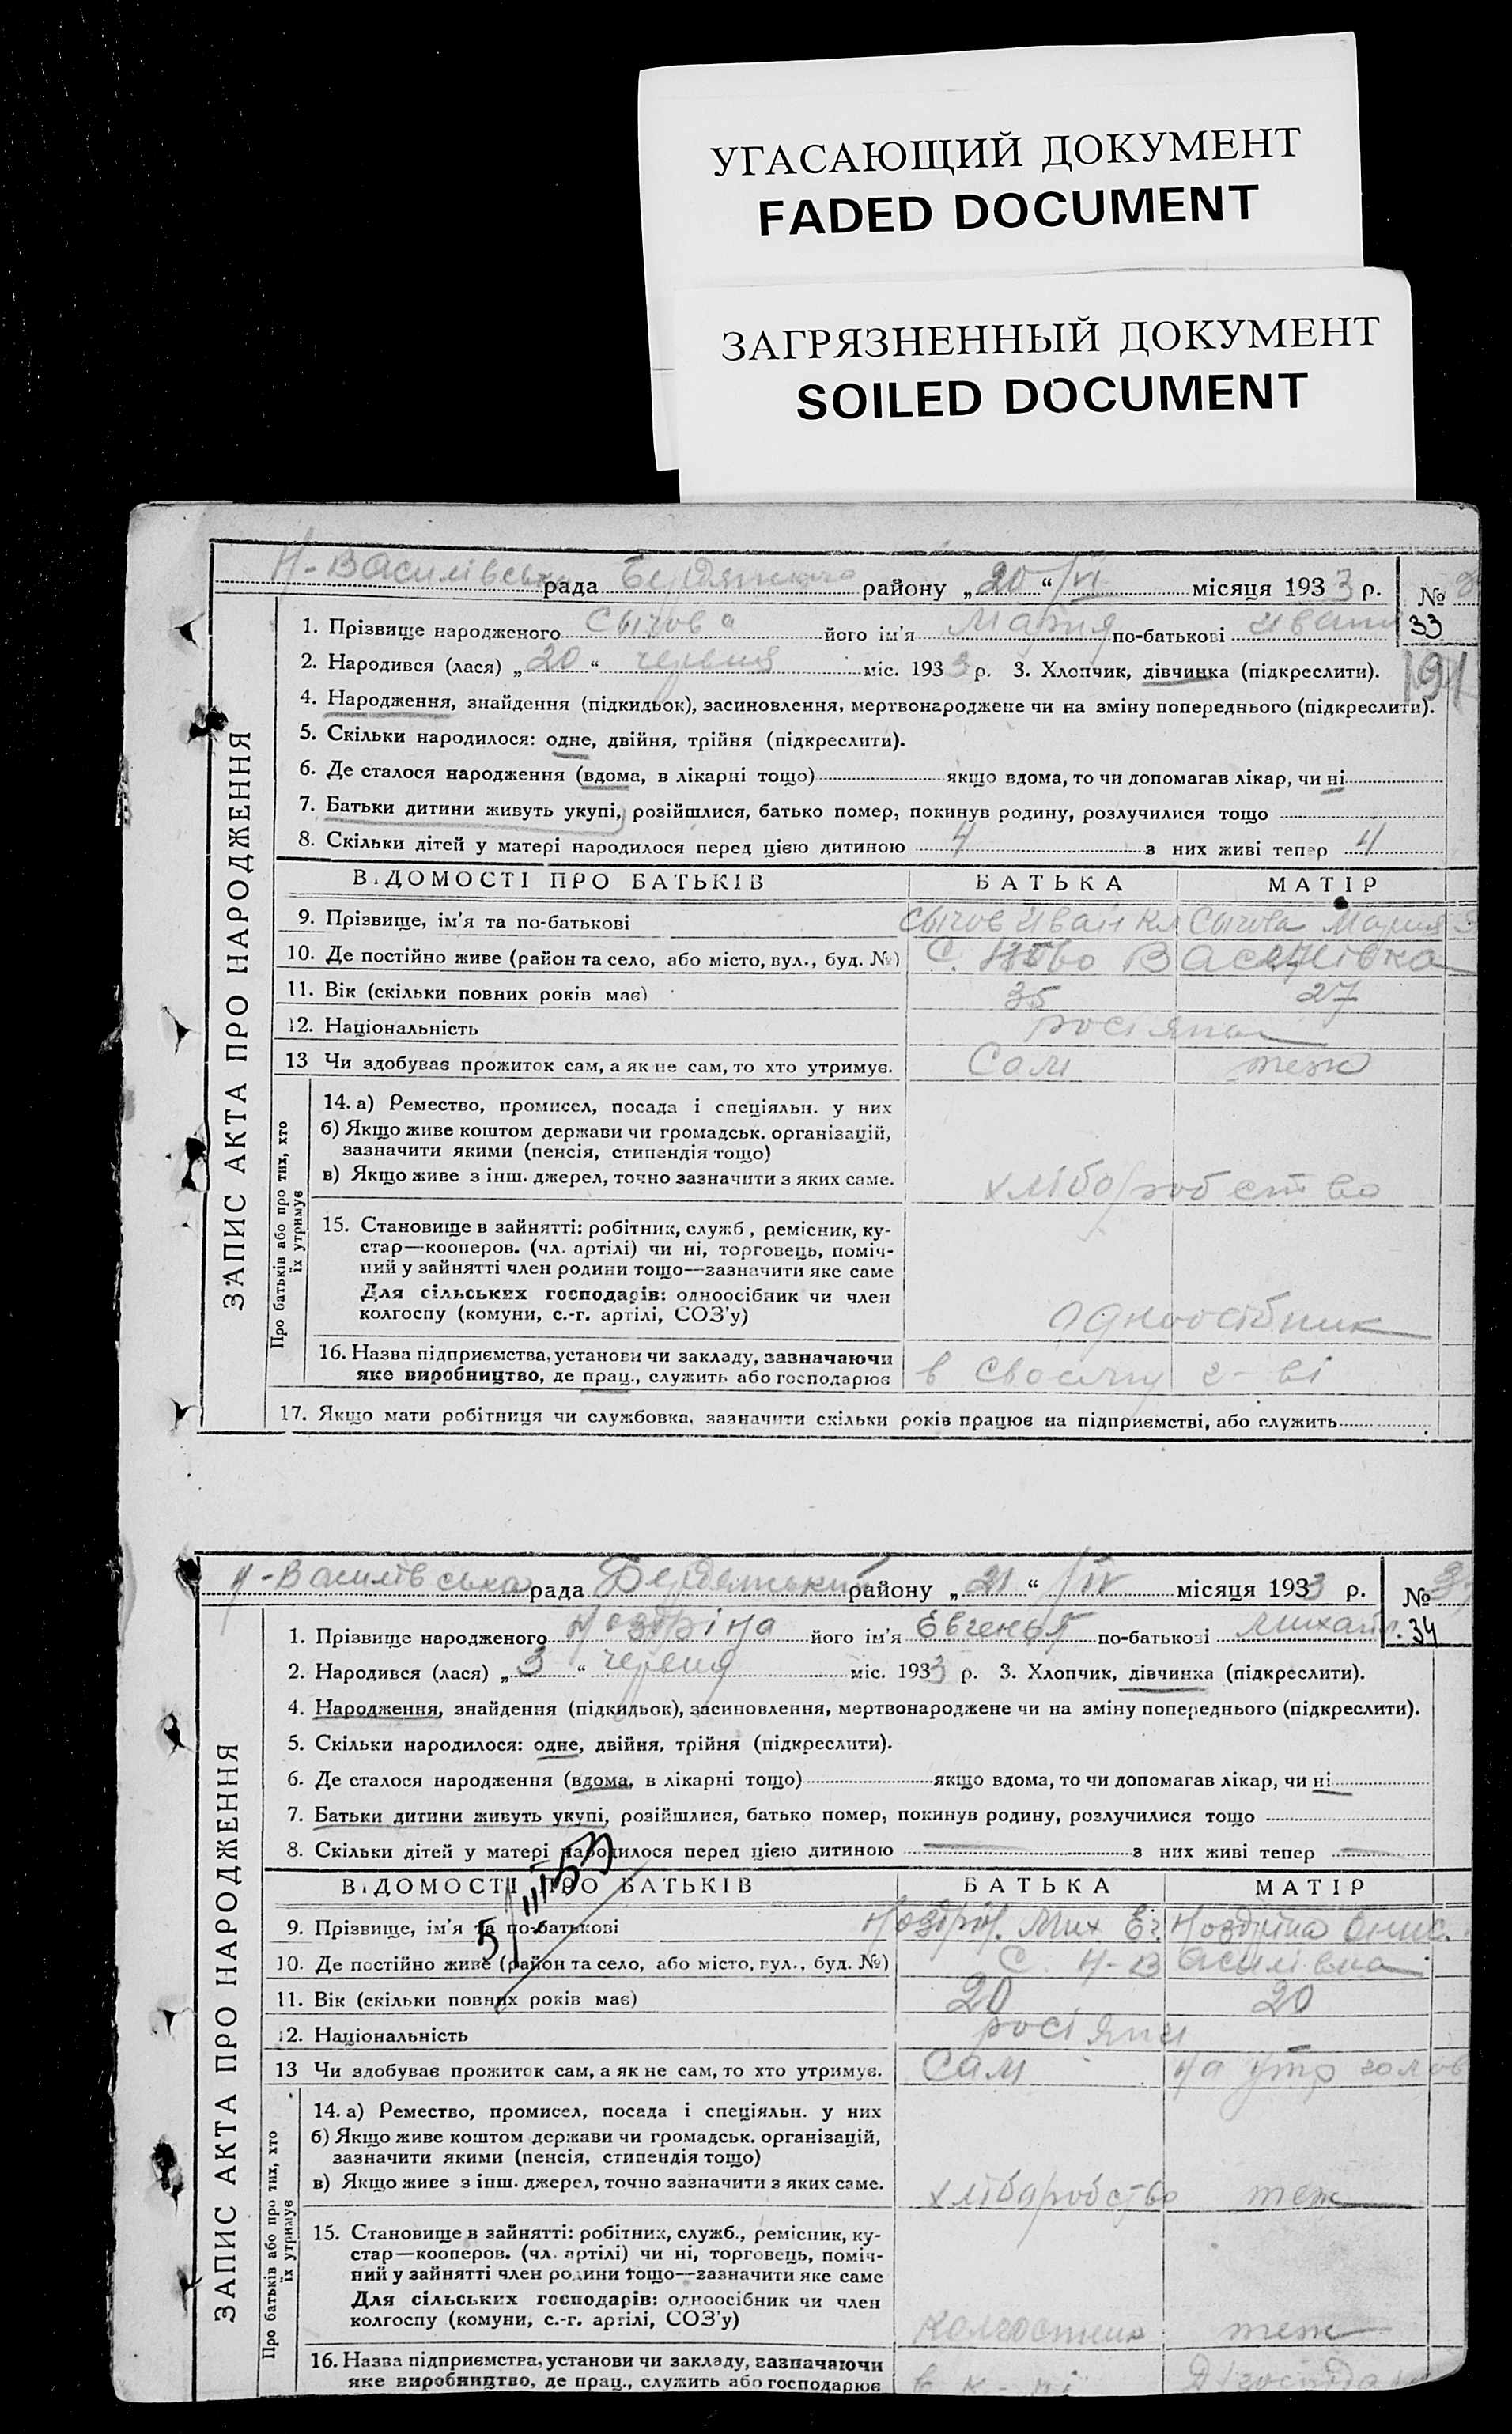 УГАСАЮЩИЙ ДОКУМЕНТ
FADED DOCUMENT
ЗАГРЯЗНЕННЫЙ ДОКУМЕНТ
SOILED DOCUMENT
Н-Василівська рада Бердянського району „20“ /VI місяця 1933 р. №
33
1. Прізвище народженого Сычова його ім'я Мария по-батькові Иван
2. Народився (лася) „20“ червня міс. 1933 р. 3. Хлопчик, дівчинка (підкреслити).
191
4. Народження, знайдення (підкидьок), засиновлення, мертвонароджене чи на зміну попереднього (підкреслити).
5. Скільки народилося: одне, двійня, трійня (підкреслити).
6. Де сталося народження (вдома, в лікарні тощо) якщо вдома, то чи допомагав лікар, чи ні
7. Батьки дитини живуть укупі, розійшлися, батько помер, покинув родину, розлучилися тощо
8. Скільки дітей у матері народилося перед цією дитиною 4 з них живі тепер 4
ВІДОМОСТІ ПРО БАТЬКІВ БАТЬКА МАТІР
9. Прізвище, ім'я та по-батькові Сычов Иван Кл Сычова Мария
10. Де постійно живе (район та село, або місто, вул., буд. №) С. Ново Василівка
11. Вік (скільки повних років має) 35 27
12. Національність росіяни
13 Чи здобуває прожиток сам, а як не сам, то хто утримує. Сам теж
14. а) Ремество, промисел, посада і спеціяльн. у них
б) Якщо живе коштом держави чи громадськ. організацій,
зазначити якими (пенсія, стипендія тощо)
в) Якщо живе з інш. джерел, точно зазначити з яких саме. хліборобство
15. Становище в зайнятті: робітник, служб., ремісник, ку-
стар—кооперов. (чл. артілі) чи ні, торговець, поміч-
ний у зайнятті член родини тощо—зазначити яке саме
Для сільських господарів: одноосібник чи член
колгоспу (комуни, с.-г. артілі, СОЗ'у) одноосібник
16. Назва підприємства, установи чи закладу, зазначаючи
яке виробництво, де прац., служить або господарює в своєму г-ві
17. Якщо мати робітниця чи службовка, зазначити скільки років працює на підприємстві, або служить
ЗАПИС АКТА ПРО НАРОДЖЕННЯ
Про батьків або про тих, хто
їх утримує
Н-Василівська рада Бердянський району „21“ місяця 1933 р. №
34
1. Прізвище народженого Ноздріна його ім'я Евгенья по-батькові Михайл.
2. Народився (лася) „3“ червня міс. 1933 р. 3. Хлопчик, дівчинка (підкреслити).
4. Народження, знайдення (підкидьок), засиновлення, мертвонароджене чи на зміну попереднього (підкреслити).
5. Скільки народилося: одне, двійня, трійня (підкреслити).
6. Де сталося народження (вдома, в лікарні тощо) якщо вдома, то чи допомагав лікар, чи ні
7. Батьки дитини живуть укупі, розійшлися, батько помер, покинув родину, розлучилися тощо
8. Скільки дітей у матері народилося перед цією дитиною — з них живі тепер —
5/III 53
ВІДОМОСТІ ПРО БАТЬКІВ БАТЬКА МАТІР
9. Прізвище, ім'я та по-батькові Ноздрін. Мих Ноздріна Онис.
10. Де постійно живе (район та село, або місто, вул., буд. №) С. Н-Василівка
11. Вік (скільки повних років має) 20 20
12. Національність росіяни
13 Чи здобуває прожиток сам, а як не сам, то хто утримує. Сам на утр голов
14. а) Ремество, промисел, посада і спеціяльн. у них
б) Якщо живе коштом держави чи громадськ. організацій,
зазначити якими (пенсія, стипендія тощо)
в) Якщо живе з інш. джерел, точно зазначити з яких саме. хліборобство теж
15. Становище в зайнятті: робітник, служб., ремісник, ку-
стар—кооперов. (чл. артілі) чи ні, торговець, поміч-
ний у зайнятті член родини тощо—зазначити яке саме
Для сільських господарів: одноосібник чи член
колгоспу (комуни, с.-г. артілі, СОЗ'у) колгоспник теж
16. Назва підприємства, установи чи закладу, зазначаючи
яке виробництво, де прац., служить або господарює
ЗАПИС АКТА ПРО НАРОДЖЕННЯ
Про батьків або про тих, хто
їх утримує